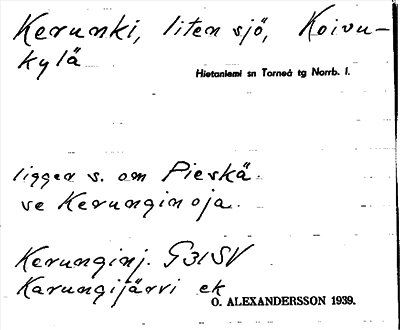 Kerunki, liten sjö, Koivu-
kylä
Hietaniemi sn Torneå tg Norrb. l.
ligger s. om Pieskä.
se Kerunginoja.
Kerunginj. G31SV
Karungijärvi ek
O. ALEXANDERSSON 1939.